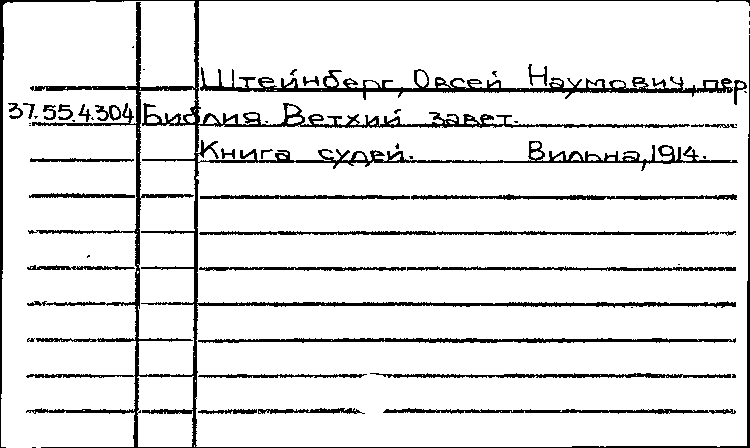 Штейнберг, Овсей Наумович, пер.
37.55.4.304 Библия. Ветхий завет.
Книга судей. Вильна, 1914.